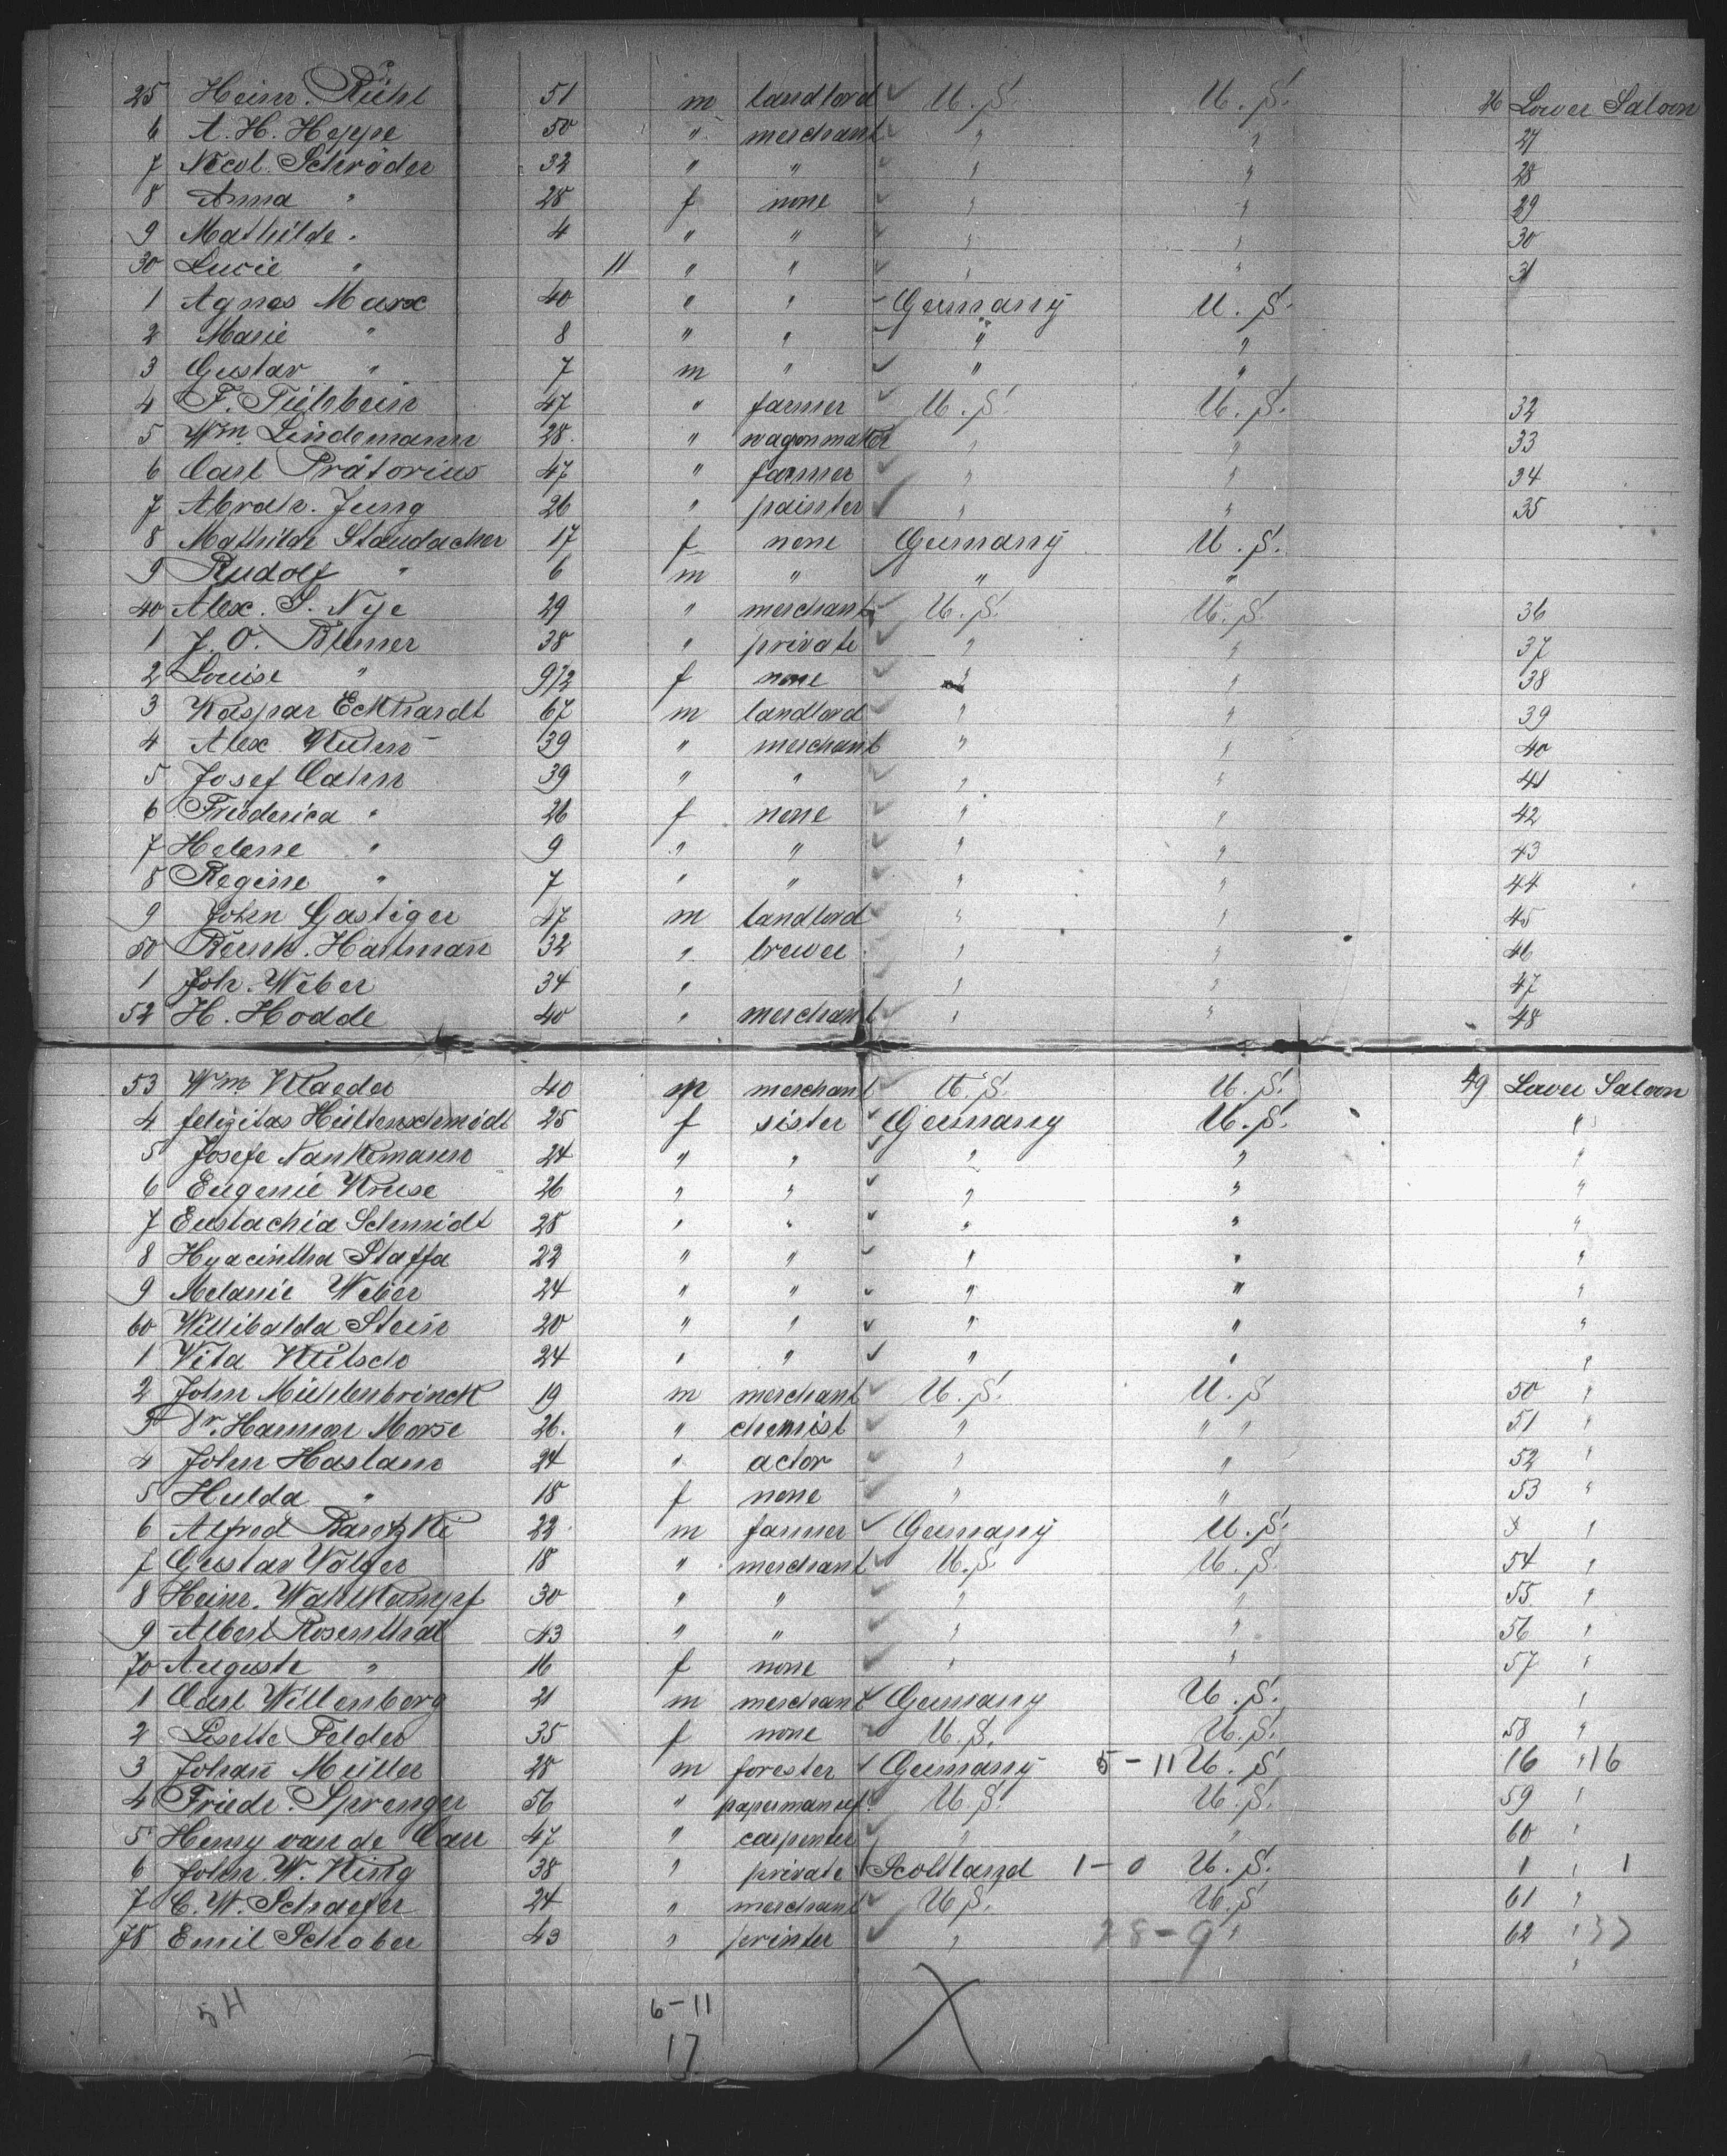 25 Heinr. Rühl 51 m landlord U.S. U.S. 26 Lower Saloon
6 A. H. Heppe 50 " merchant " " 27
7 Nicol. Schröder 32 " " " " 28
8 Anna " 28 f none " " 29
9 Mathilde " 4 " " " " 30
30 Lucie " 11 " " " " 31
1 Agnes Marx 40 " " Germany U.S.
2 Marie " 8 " " " "
3 Gustav " 7 m " " "
4 F. Tielebein 47 " farmer U.S. U.S. 32
5 Wm. Lindemann 28. " wagonmaker " " 33
6 Carl Prätorius 47 " farmer " " 34
7 Abrah. Jung 26 " painter " " 35
8 Mathilde Staudacher 17 f none Germany U.S.
9 Rudolf " 6 m " " "
40 Alex. S. Nye 29 " merchant U.S. U.S. 36
1 J. O. Blemer 38 " private " " 37
2 Louise " 9 1/2 f none " " 38
3 Kaspar Eckhardt 67 m landlord " " 39
4 Alex Kuhn 39 " merchant " " 40
5 Josef Cahn 39 " " " " 41
6 Friederica " 26 f none " " 42
7 Helene " 9 " " " " 43
8 Regine " 7 " " " " 44
9 John Gastiger 47 m landlord " " 45
50 Bernh. Hartmañ 32 " brewer " " 46
1 Joh. Weber 34 " " " 47
52 H. Hodde 40 " merchant " " 48
53 Wm. Klaeder 40 m merchant U.S. U.S. 49 Lower Saloon
4 Felizitas Hültenschmidt 25 f sister Germany U.S. "
5 Josefe Nankemann 24 " " " " "
6 Eugenie Kruse 26 " " " " "
7 Eustachia Schmidt 28 " " " " "
8 Hyacintha Staffa 22 " " " " "
9 Melanie Weber 24 " " " " "
60 Willibalda Stein 20 " " " " "
1 Vita Klitsch 24 " " " " "
2 John Mühlenbrinck 19 m merchant U.S. U.S 50 "
3 Dr. Harmon Morse 26. " chemist " " " 51 "
4 John Haslam 24 " actor " " 52 "
5 Hulda " 18 f none " " 53 "
6 Alfred Baretzki 22 m farmer Germany U.S. "
7 Gustav Völger 18 " merchant U.S. U.S. 54 "
8 Heinr. Wahlkampf 30 " " " " 55 "
9 Albert Rosenthal 43 " " " " 56 "
70 Auguste " 16 f none " " 57 "
1 Carl Wittenberg 21 m merchant Germany U.S. "
2 Lisette Felder 35 f none U.S. U.S. 58 "
3 Johañ Müller 28 m forester Germany 5-11 U.S 16 " 16
4 Friedr. Sprenger 56 " papermanuf. U.S. U.S. 59 "
5 Henry van de Carr 47 " carpenter " " 60 "
6 John W. King 38 " private Scottland 1-0 U.S. 1 " 1
7 C. W. Schaefer 24 " merchant U.S. U.S 61 "
78 Emil Schober 43 " printer " 28-9 " 62 " 37
"
54 6-11
17